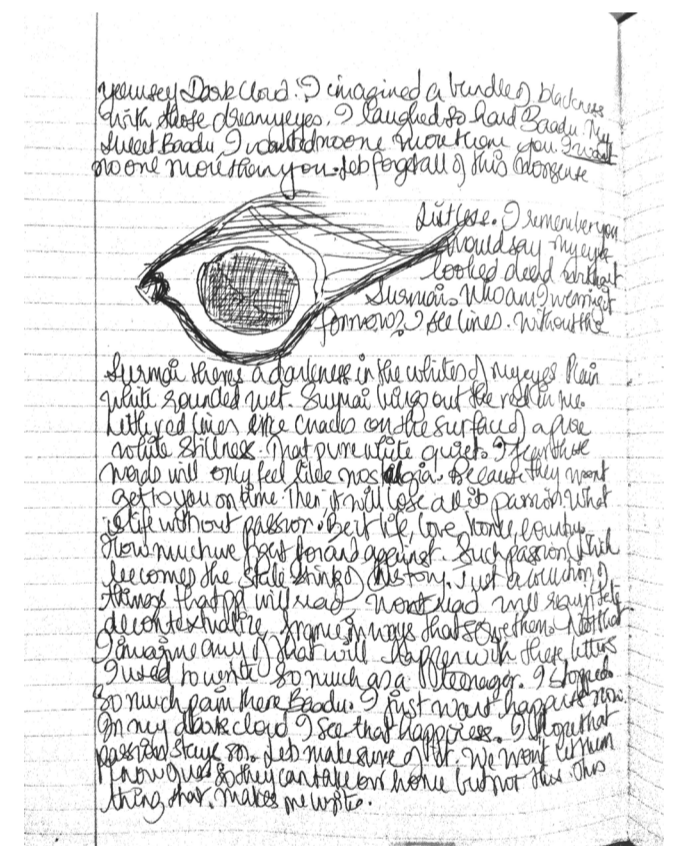 you say Dark Cloud. I imagined a bundle of blackness
with those dreamy eyes. I laughed so hard Baadu. My
sweet Baadu, I wanted no one more than you. I want
no one more than you. Let's forget all of this nonsense
Just lose. I remember you
would say my eyes
looked dead without
Surmai. Who am I wearing it
for now? I see lines. Without the
Surmai theres a darkness in the whites of my eyes. Plain
white rounded wet. Surmai brings out the red in me.
Little red lines like cracks on the surface of a pure
white stillness. That pure white quiet. I fear these
words will only feel like nostalgia. Because they wont
get to you on time. Then it will lose all its passion. What
is life without passion. Be it life, love, home, country
How much we fight for and against. Such passion which
becomes the stale stink of history. Just a collection of
things that ppl will read wont read will
decontextualize, frame in ways that serve them. Not that
I imagine any of that will happen with these letters
I used to write so much as a teenager. I stopped.
So much pain there Baadu. I just want happiness now.
In my dark cloud I see that happiness. I hope that
passion stays so. Lets make sure of it. We wont let them
know so they can take our home but not this. This
thing that makes me write.